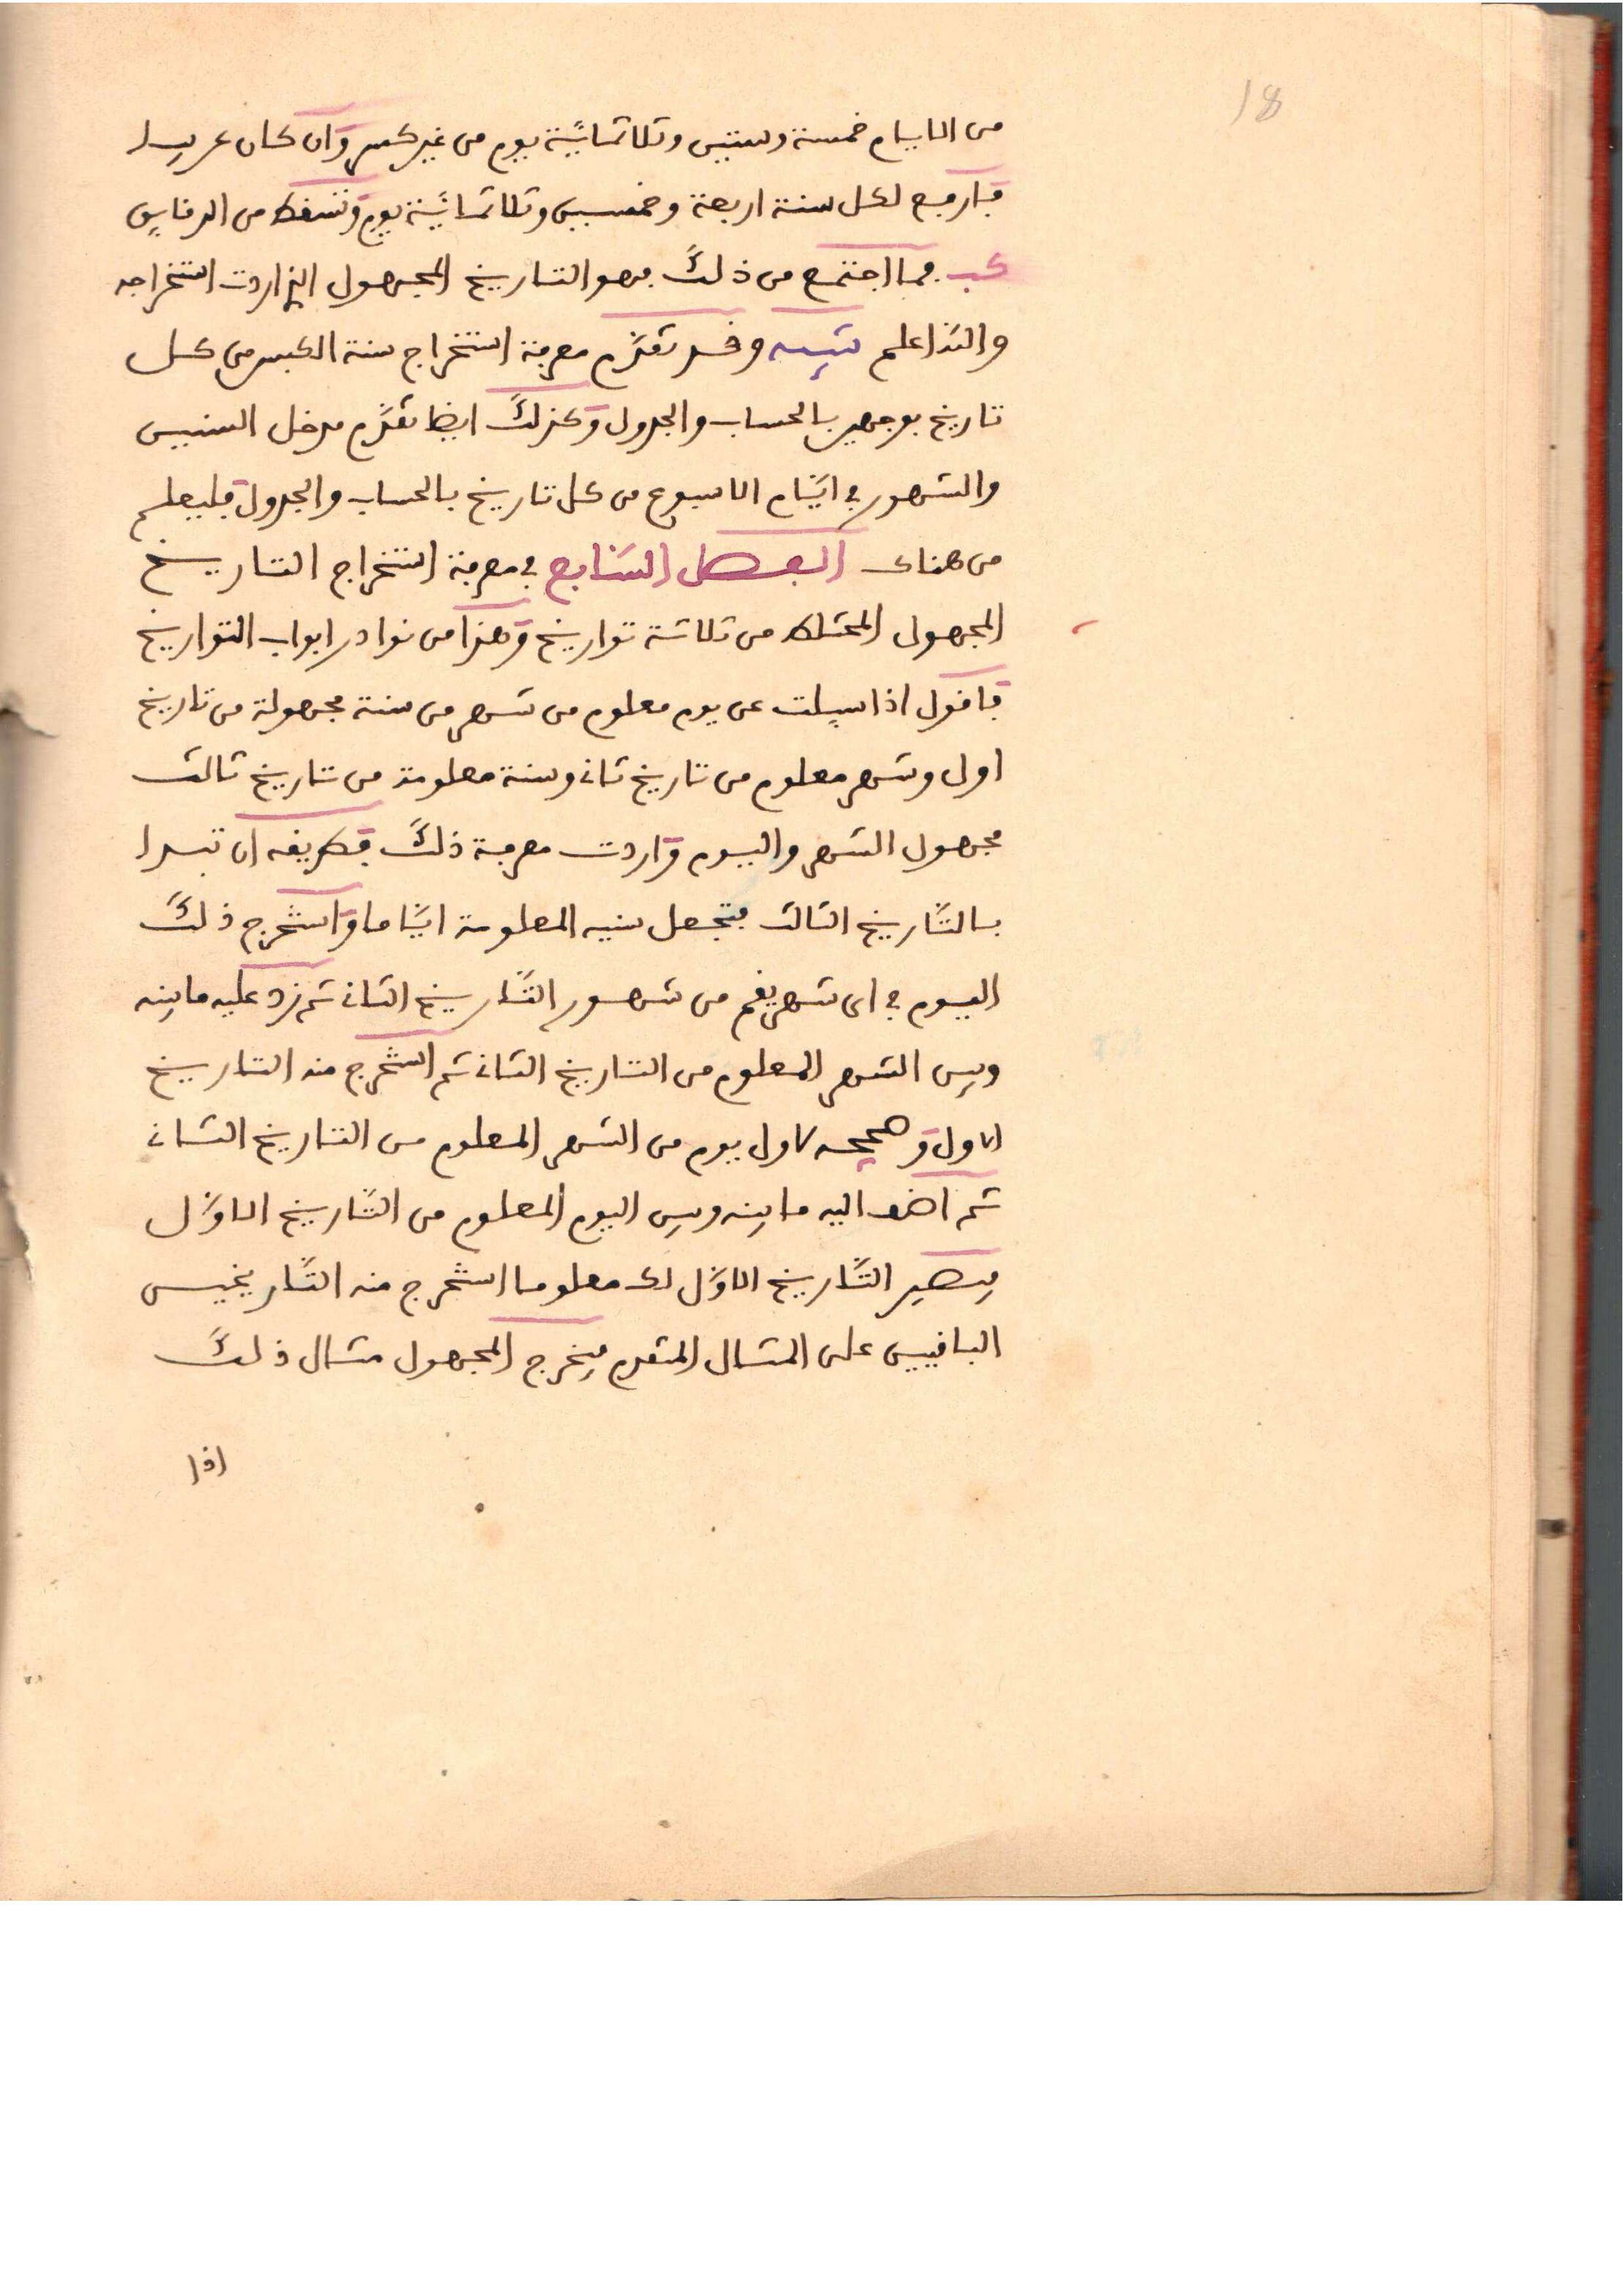 18
من الايام خمسة وستين وثلاثمائية يوم من غير كسر وان كان عربيا
فارفع لكل سنة اربعة وخمسين وثلاثمائية يوم وتسقط من الدقايق
كب فما اجتمع من ذلك فهو التاريخ المجهول الذي اردت استخراجه
والله اعلم تنبيه وقد تقدم معرفة استخراج سنة الكبس من كل
تاريخ بوجهين بالحساب والجدول وكذلك ايضا تقدم مدخل السنين
والشهور في ايام الاسبوع من كل تاريخ بالحساب والجدول فليعلم
من هناك الفصل السابع في معرفة استخراج التاريخ
المجهول المختلط من ثلاثة تواريخ وهذا من نوادر ابواب التواريخ
فاقول اذا سيلت عن يوم معلوم من شهر من سنة مجهولة من تاريخ
اول وشهر معلوم من تاريخ ثان وسنة معلومة من تاريخ ثالث
مجهول الشهر واليوم واردت معرفة ذلك فطريقه ان تبدا
بالتاريخ الثالث فتجعل سنيه المعلومة اياما واستخرج ذلك
اليوم في اى شهر يقع من شهور التاريخ الثان ثم زد عليه ما بينه
وبين الشهر المعلوم من التاريخ الثان ثم استخرج منه التاريخ
الاول وصححه لاول يوم من الشهر المعلوم من التاريخ الثان
ثم اضف اليه ما بينه وبين اليوم المعلوم من التاريخ الاول
فيصير التاريخ الاول لك معلوما استخرج منه التاريخين
الباقيين على المثال المتقدم فيخرج المجهول مثال ذلك
اذا